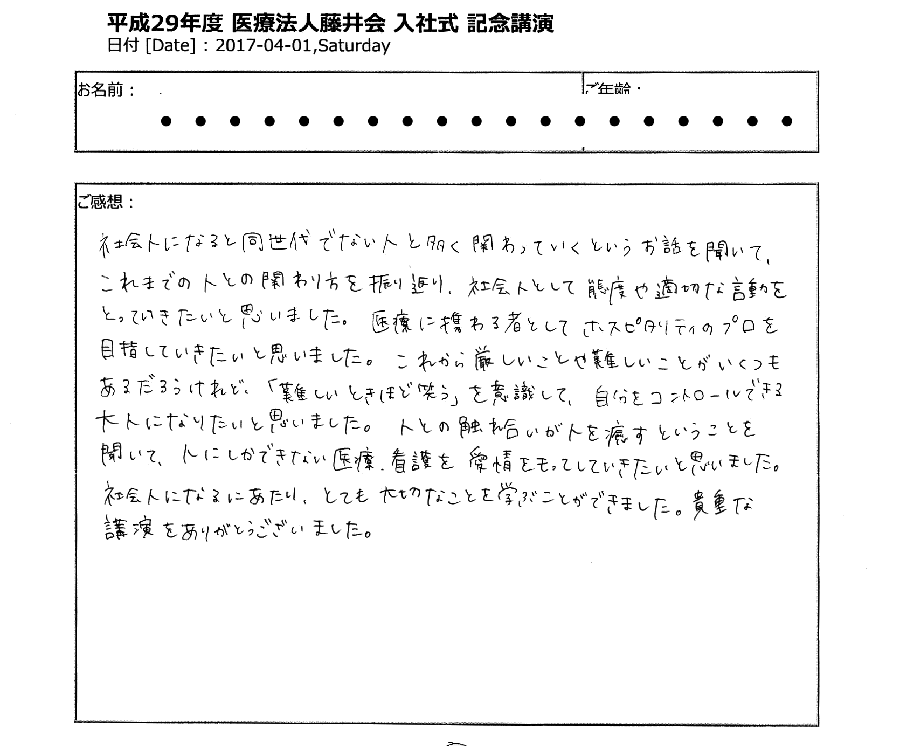 平成29年度 医療法人藤井会 入社式 記念講演
日付 [Date] : 2017-04-01,Saturday
お名前：
ご年齢：
ご感想：
社会人になると同世代でない人と多く関わっていくというお話を聞いて、
これまでの人との関わり方を振り返り、社会人として態度や適切な言動を
とっていきたいと思いました。医療に携わる者としてホスピタリティのプロを
目指していきたいと思いました。これから厳しいことや難しいことがいくつも
あるだろうけれど、「難しいときほど笑う」を意識して、自分をコントロールできる
大人になりたいと思いました。人との触れ合いが人を癒すということを
聞いて、人にしかできない医療、看護を愛情をもってしていきたいと思いました。
社会人になるにあたり、とても大切なことを学ぶことができました。貴重な
講演をありがとうございました。